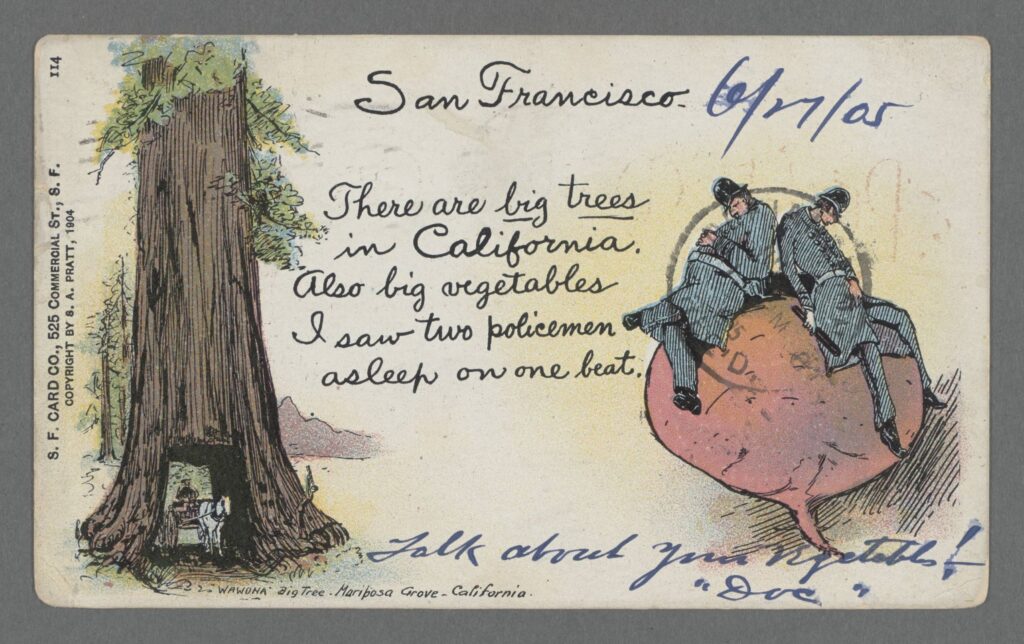 114
S. F. CARD CO., 525 COMMERCIAL ST., S. F.
COPYRIGHT BY S. A. PRATT, 1904
San Francisco. 6/27/05
There are big trees
in California.
Also big vegetables
I saw two policemen
asleep on one beat.
Talk about your vegetables!
"Doc"
"WAWONA" Big Tree - Mariposa Grove - California.